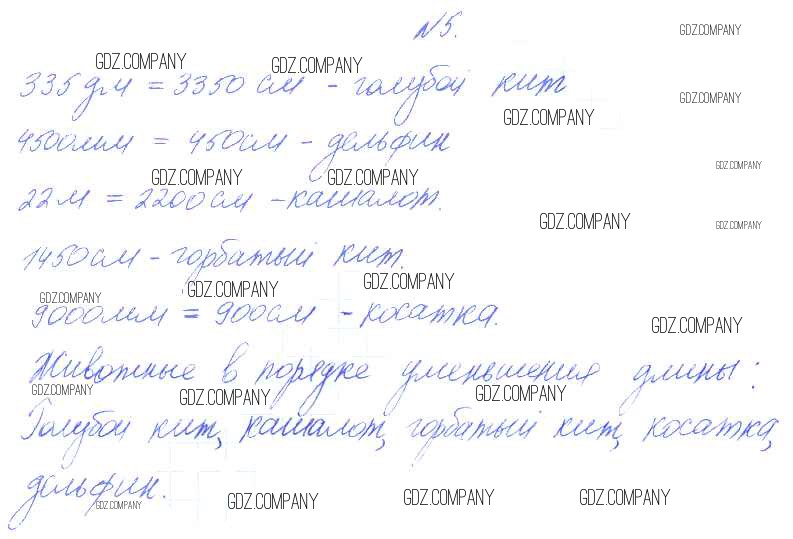 N5.
GDZ.COMPANY
GDZ.COMPANY GDZ.COMPANY
335дм = 3350см - голубой кит
GDZ.COMPANY
GDZ.COMPANY
4500мм = 450см - дельфин
GDZ.COMPANY
GDZ.COMPANY GDZ.COMPANY
22м = 2200см - кашалот.
GDZ.COMPANY GDZ.COMPANY
1450см - горбатый кит.
GDZ.COMPANY GDZ.COMPANY GDZ.COMPANY
9000мм = 900см - косатка.
GDZ.COMPANY
Животные в порядке уменьшения длины:
GDZ.COMPANY GDZ.COMPANY GDZ.COMPANY
Голубой кит, кашалот, горбатый кит, косатка,
дельфин.
GDZ.COMPANY GDZ.COMPANY GDZ.COMPANY GDZ.COMPANY